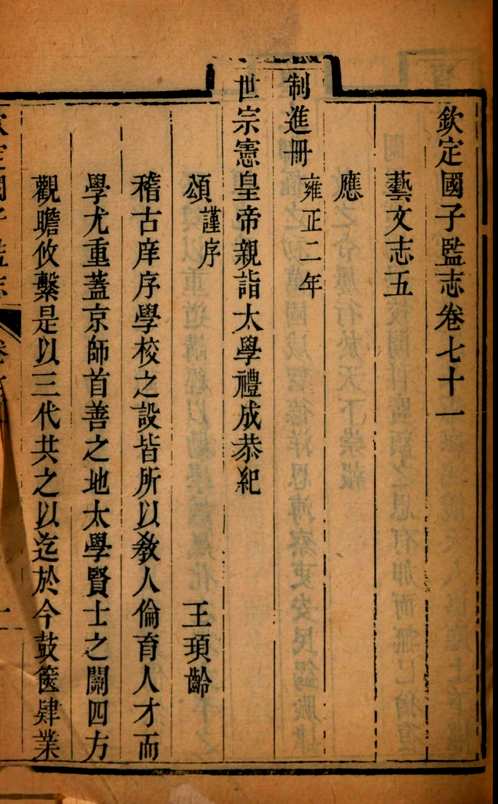 欽定國子監志卷七十一
藝文志五
應
制進冊雍正二年
世宗憲皇帝親詣太學禮成恭紀
頌謹序 王頊齡
稽古庠序學校之設皆所以敎人倫育人才而
學尤重蓋京師首善之地太學賢士之關四方
觀瞻攸繫是以三代共之以迄於今鼓篋肄業